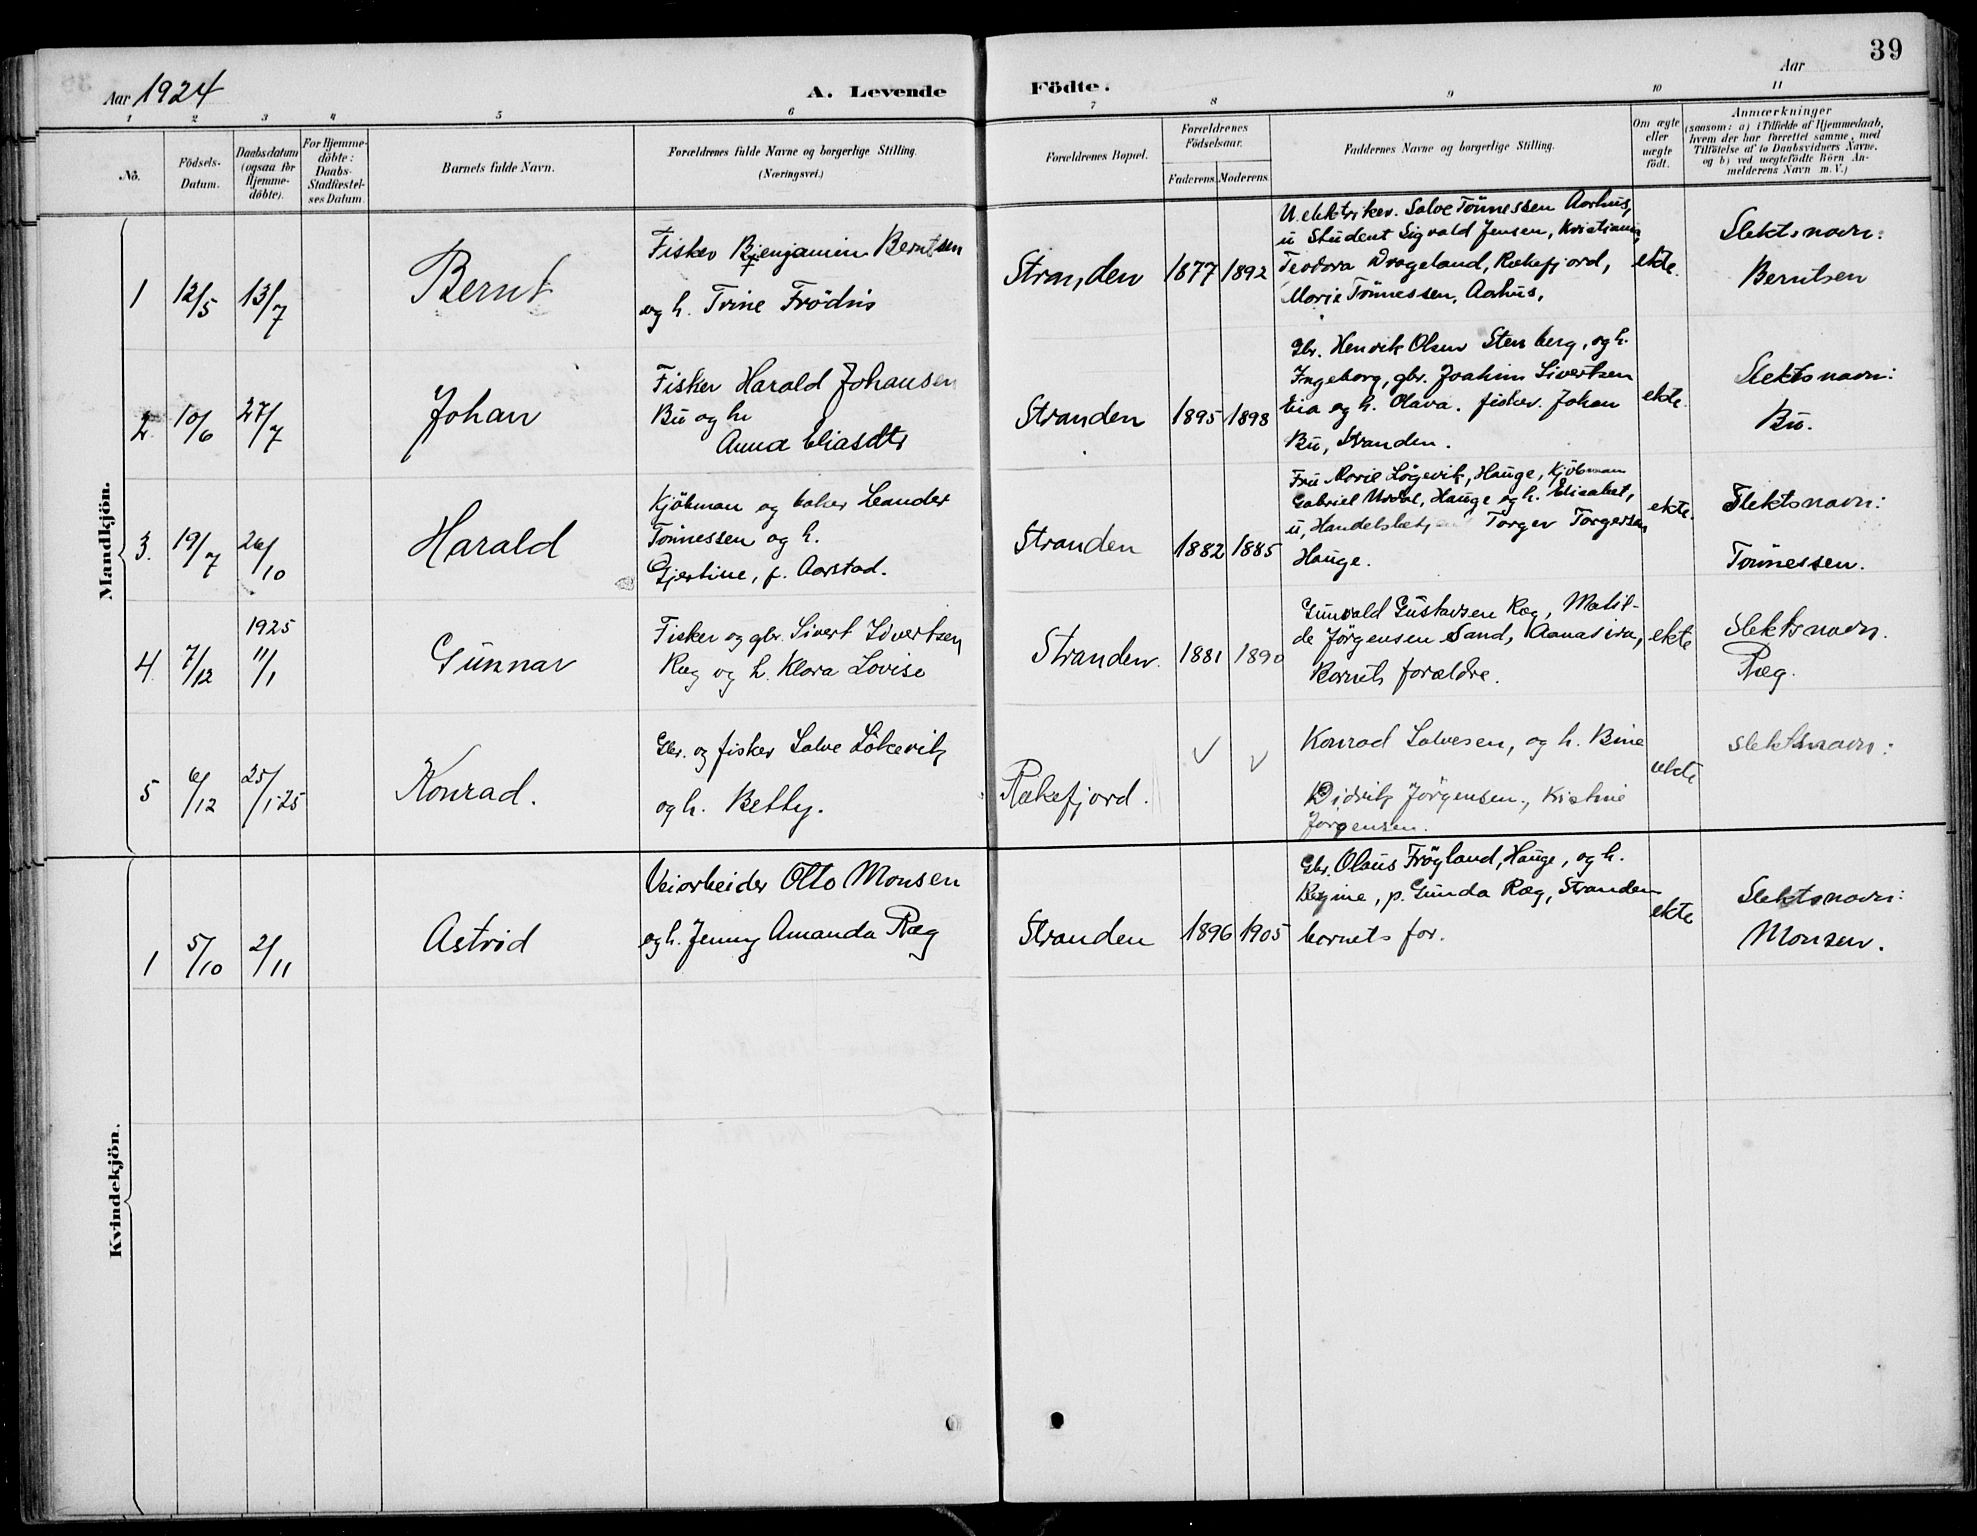 39
Aar 1924
A. Levende
Födte.
Aar
1 2 3 4 5 6 7 8 9 10 11
No.
Födsels-
Datum.
Daabsdatum
(ogsaa for
Hjemme-
döbte).
For Hjemme-
döbte:
Daabs-
Stadfæstel-
ses Datum.
Barnets fulde Navn.
Forældrenes fulde Navne og borgerlige Stilling.
(Næringsvei.)
Forældrenes Bopæl.
Forældrenes
Födselsaar.
Faderens. Moderens.
Faddernes Navne og borgerlige Stilling.
Om ægte
eller
uægte
födt.
Anmærkninger
(saasom: a) i Tilfælde af Hjemmedaab,
hvem der har forrettet samme, med
Tilföielse af to Daabsvidners Navne,
og b) ved uægtefödte Börn An-
melderens Navn m. V.)
Mandkjön.
1 12/5 13/7
Bernt
Fisker Benjamin Berntsen
og h. Trine Frödis
Stranden 1877 1892
U. elektriker. Salve Tönnessen Aarhus,
u Student Sigvald Jensen, Kristiania,
Teodora Drageland, Rekefjord,
Marie Tönnessen, Aarhus,
ekte.
Slektsnavn:
Berntsen
2. 10/6 27/7
Johan
Fisker Harald Johansen
Bu og h
Anna Eliasdtr
Stranden 1895 1898
Gbr. Henrik Olsen Stenberg, og h.
Ingeborg, gbr. Joahim Sivertsen
Eia og h. Olava. fisker. Johan
Bu, Stranden.
ekte.
Slektsnavn:
Bu.
3. 19/7 26/10
Harald
Kjöbman og baker Leander
Tönnessen og h.
Gjertine, f. Aarstad.
Stranden 1882 1885
Fru Marie Lögevik, Hauge, Kjöbman
Gabriel Urdal, Hauge og h. Elisabet,
u, Torger Torgersen
Hauge.
ekte.
Slektsnavn:
Tönnessen.
4 7/12 1925
11/1
Gunnar
Fisker og gbr. Sivert Sivertsen
Ræg og h. Klara Lovise
Stranden. 1881 1890
Gunvald Gustavsen Ræg, Matil-
de Jörgensen Sand, Aanasira,
Barnets forældre.
ekte
Slektsnavn.
Ræg.
5 6/12 25/1-25
Konrad.
Gbr. og fisker Salve Lökevik
og h. Betty.
Rekefjord.
Konrad Salvesen, og h. Bine
Didrik Jörgensen, Kistine
Jörgensen.
ekte
slektsnavn:
Kvindekjön.
1 5/10 2/11
Astrid
Veiarbeider Otto Monsen
og h. Jenny Amanda Ræg
Stranden 1896 1905
Gbr. Olaus Frögland, Hauge, og h.
Regine, p. Gunda Ræg, Stranden
barnets for.
ekte
Slektsnavn:
Monsen.